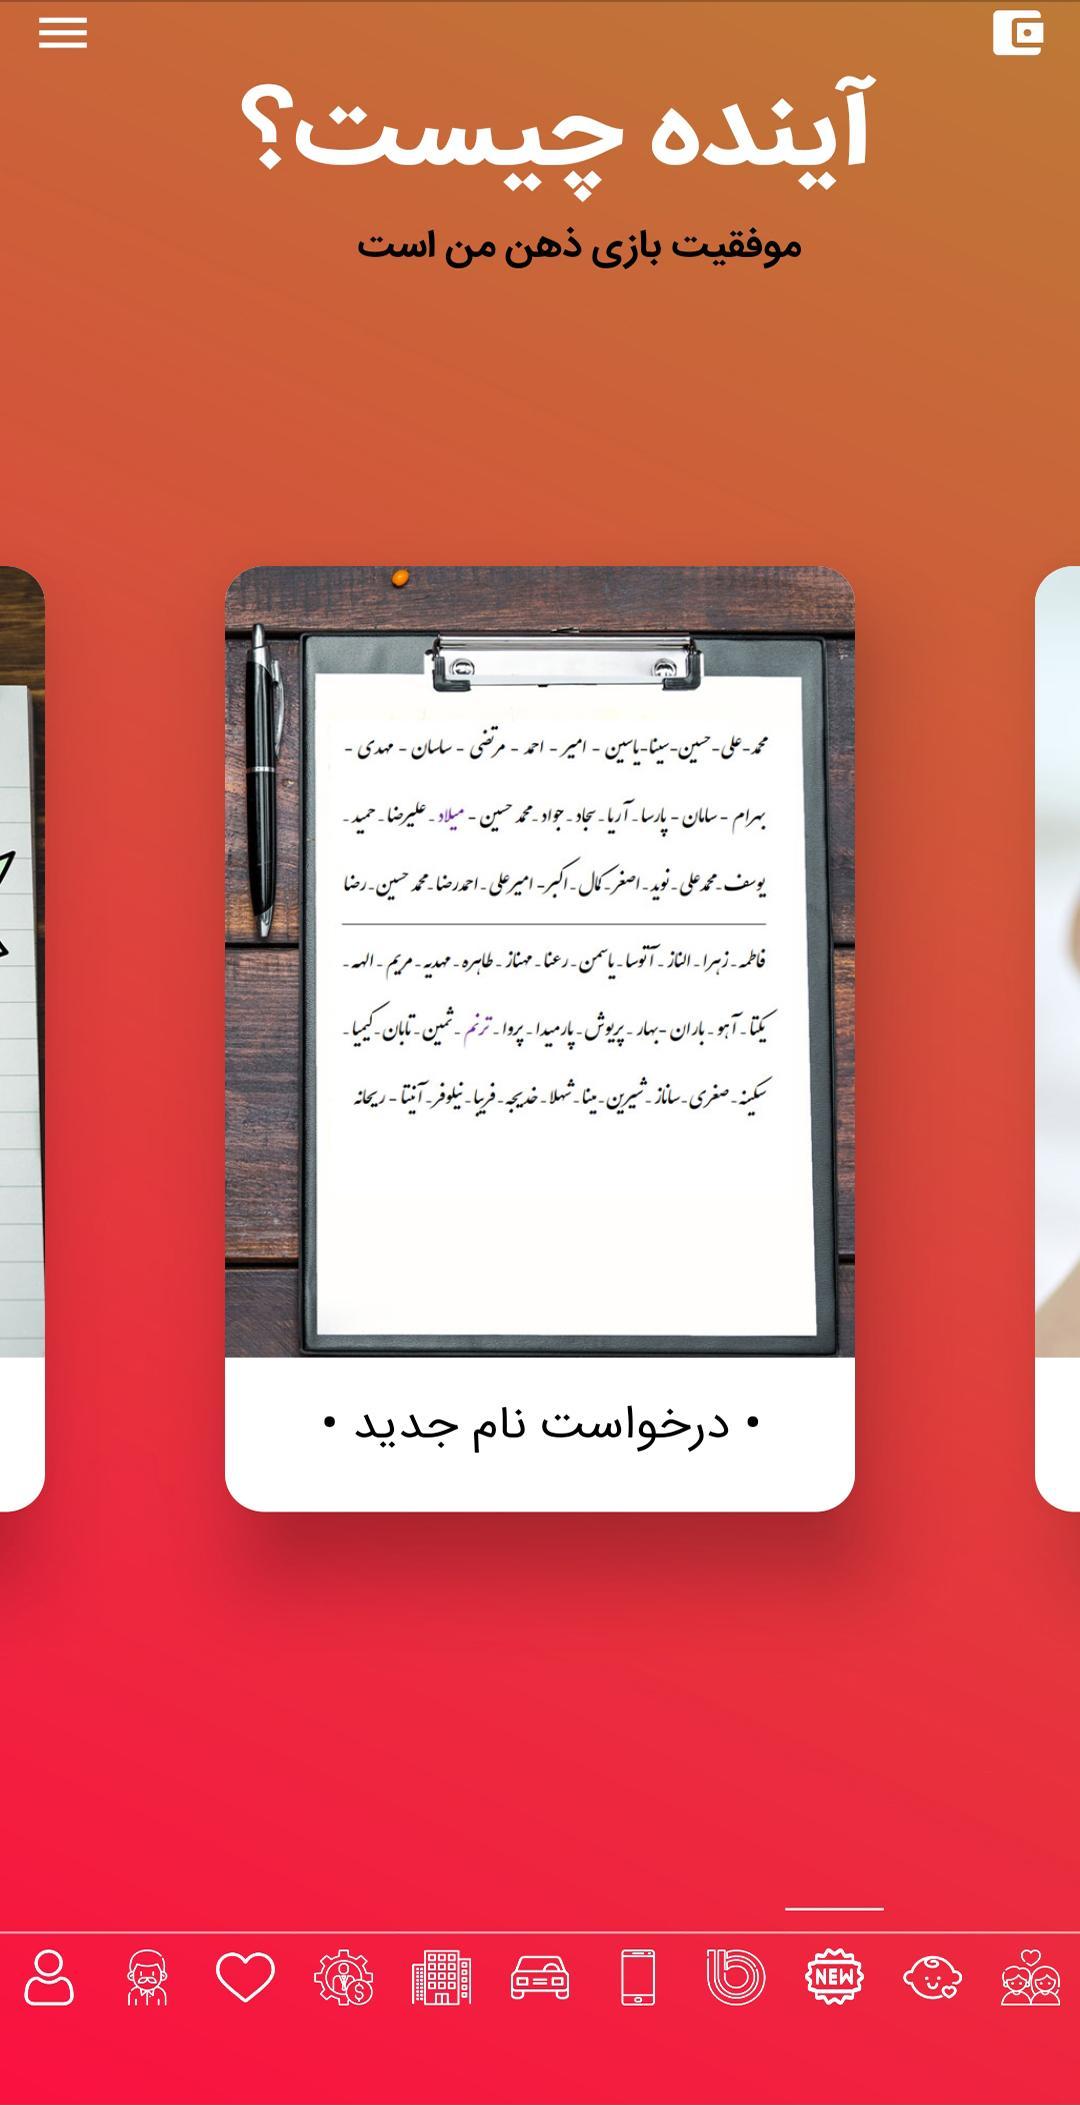 آینده چیست؟
موفقیت بازی ذهن من است
محمد-علی-حسین-سینا-یاسین - امیر - احمد - مرتضی - ساسان - مهدی -
بهرام - سامان - پارسا - آریا - سجاد - جواد - محمد حسین - میلاد - علیرضا - حمید -
یوسف - محمدعلی - نوید - اصغر - کمال - اکبر - امیرعلی - احمدرضا - محمد حسین - رضا
فاطمه - زهرا - الناز - آتوسا - یاسمن - رعنا - مهناز - طاهره - مهدیه - مریم - الهه -
یکتا - آهو - باران - بهار - پریوش - پارمیدا - پروا - ترنم - ثمین - تابان - کیمیا -
سکینه - صغری - ساناز - شیرین - مینا - شهلا - خدیجه - فریبا - نیلوفر - آنیتا - ریحانه
• درخواست نام جدید •
NEW